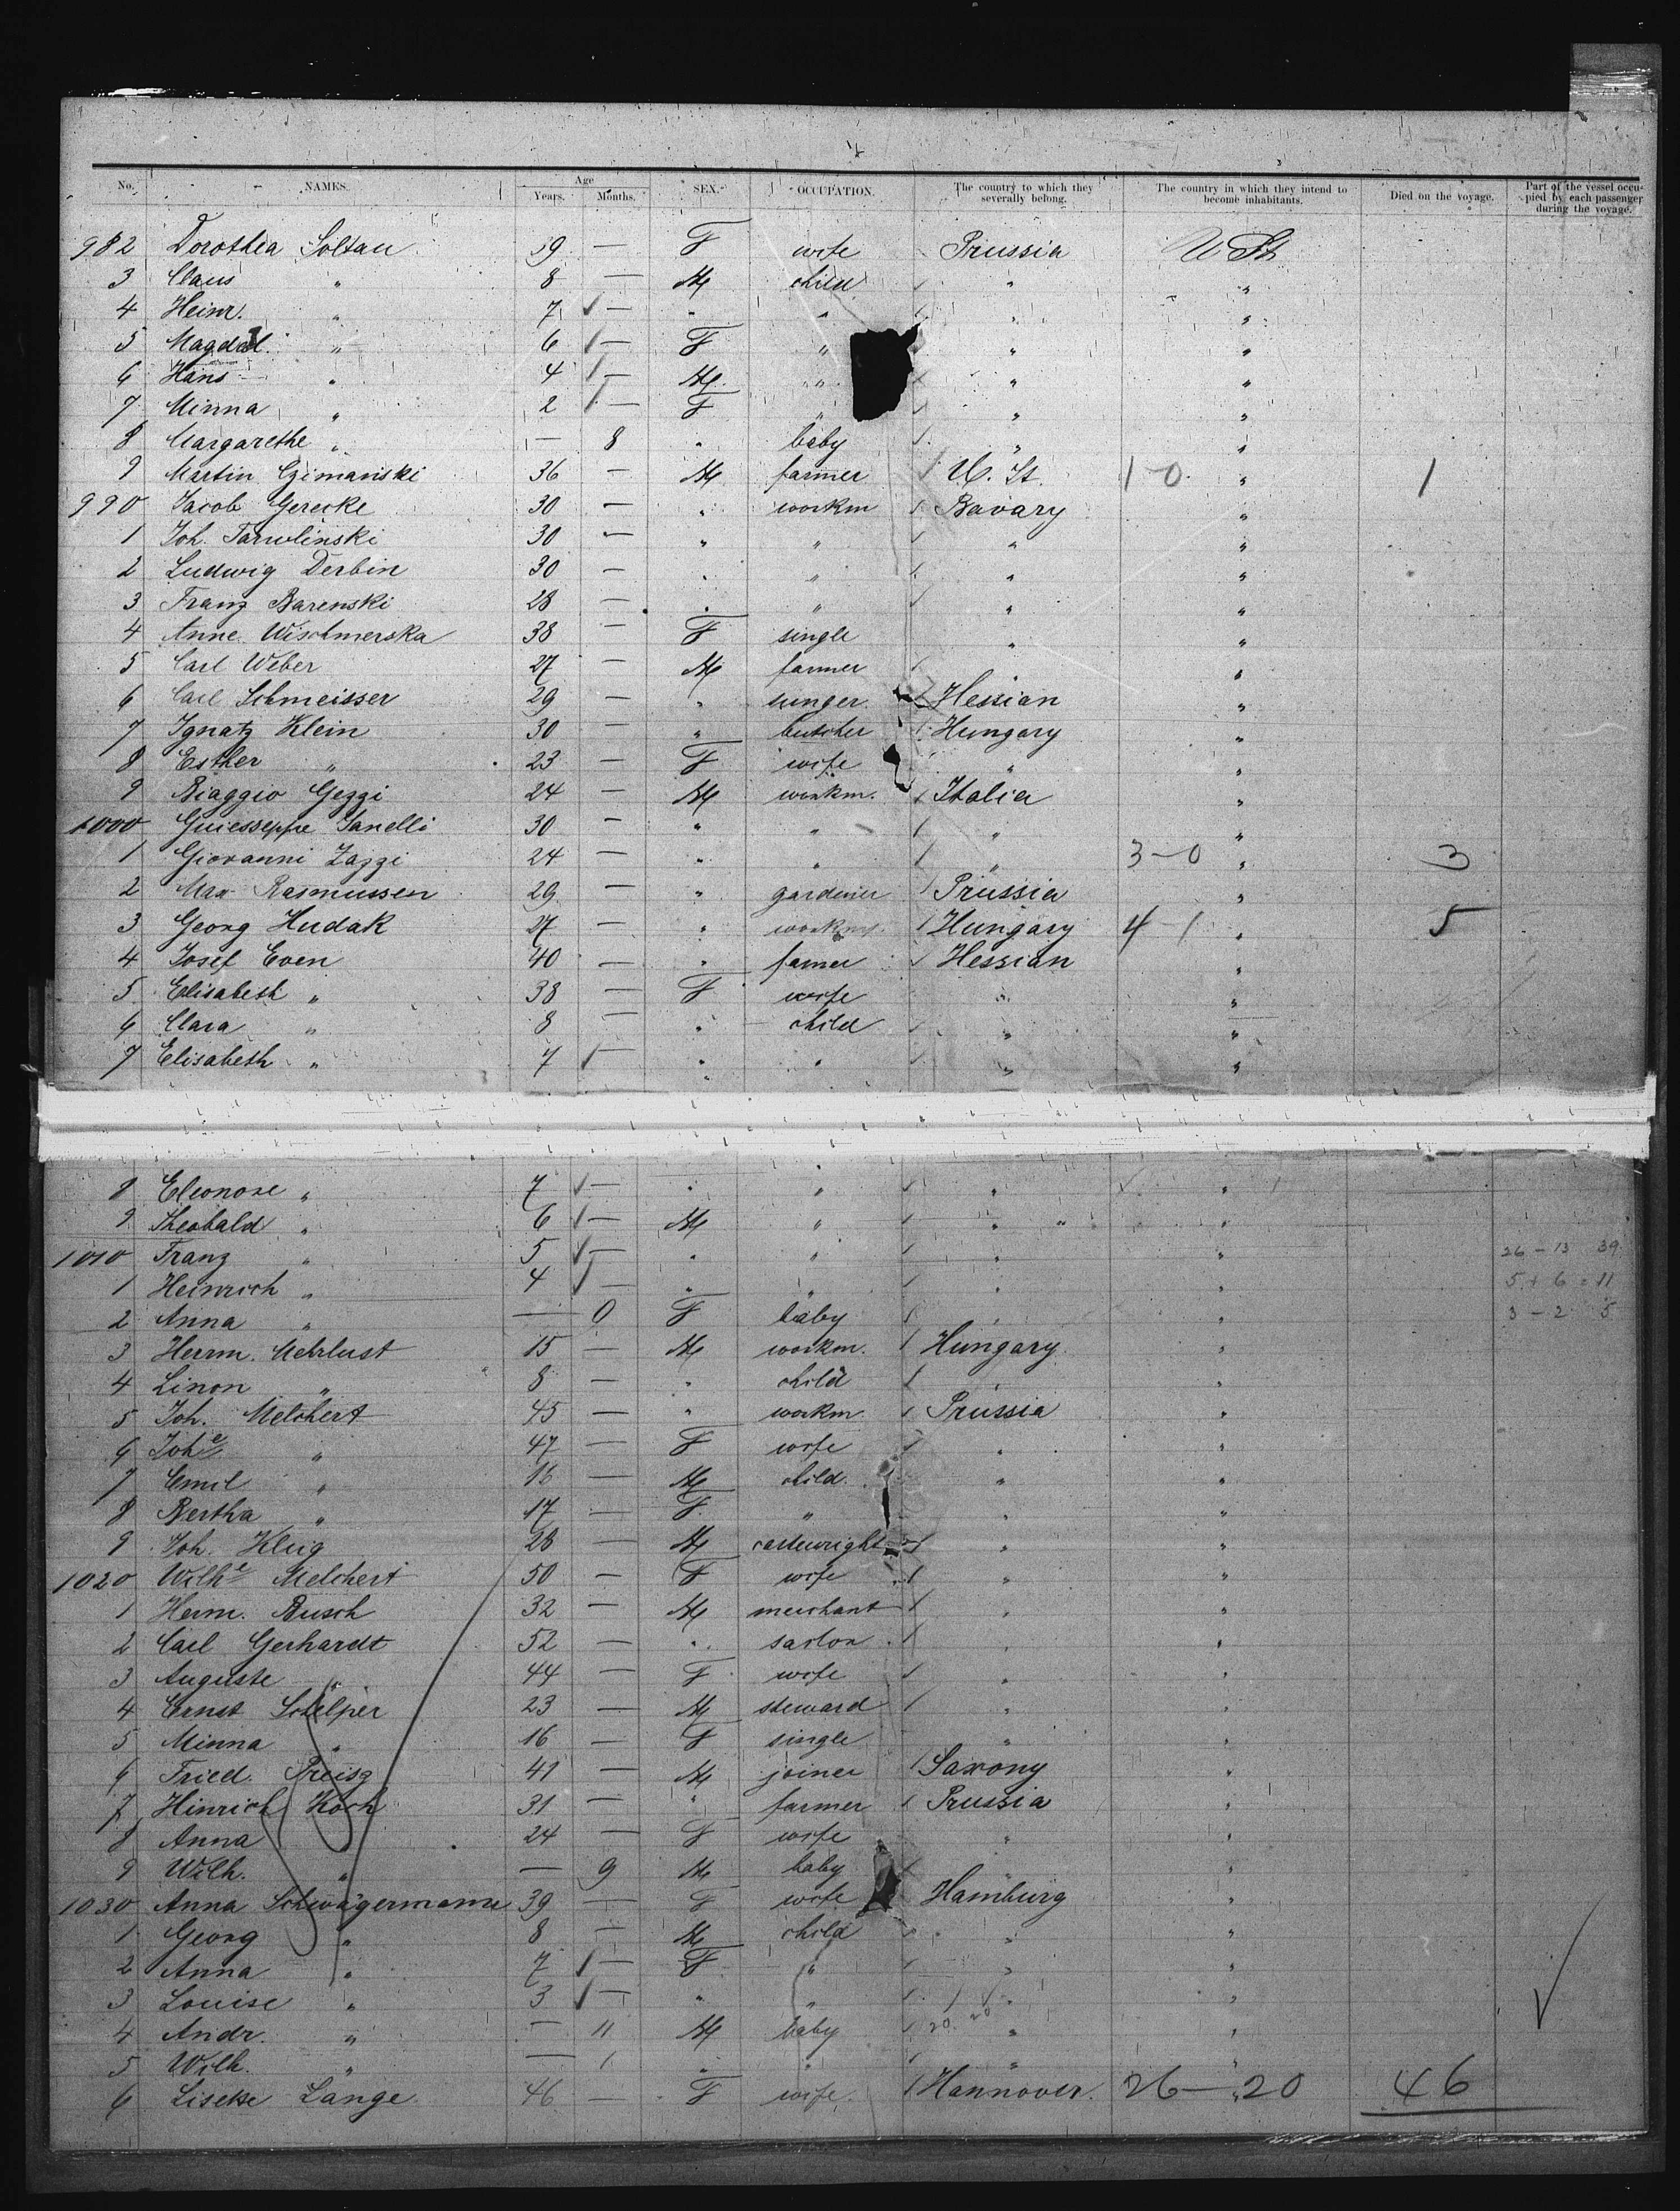 No. NAMES. Age Years. Months. SEX. OCCUPATION. The country to which they severally belong. The country in which they intend to become inhabitants. Died on the voyage. Part of the vessel occupied by each passenger during the voyage.
982 Dorothea Soltau 39 — F wife Prussia U St
3 Claus " 8 — M child " "
4 Heinr. " 7 — " " " "
5 Magdal. " 6 — F " " "
6 Hans " 4 — M " " "
7 Minna " 2 — F " " "
8 Margarethe " — 8 " baby " "
9 Martin Czimanski 36 — M farmer U. St. 1-0 " 1
990 Jacob Gerecke 30 — " workm Bavary "
1 Joh. Tarwlinski 30 — " " " "
2 Ludwig Derbin 30 — " " " "
3 Franz Barenski 28 — " " " "
4 Anne 38 — F single " "
5 Carl Weber 27 — M farmer "
6 Carl Schmeisser 29 — " Hessian "
7 Ignatz Klein 30 — " butcher Hungary "
8 Esther " 23 — F wife " "
9 Biaggio Gezzi 24 — M workm. Italia "
1000 Guiesseppe Sanelli 30 — " " " "
1 Giovanni Zazzi 24 — " " " 3-0 " 3
2 Max Rasmussen 29 — " gardener Prussia "
3 Georg Hudak 27 — " workm. Hungary 4-1 " 5
4 Josef Even 40 — " farmer Hessian "
5 Elisabeth " 38 — F wife " "
6 Clara " 8 — " child " "
7 Elisabeth " 7 — " " " "
8 Eleonore " 7 — " " " "
9 Theobald " 6 — M " " " "
1010 Franz " 5 — " " " 26 - 13 39
1 Heinrich " 4 — " " " " 5 + 6 = 11
2 Anna " — 0 F baby " " 3 - 2 5
3 Herrm. Mehrlust 15 — M workm. Hungary "
4 Linon " 8 — " child " "
5 Joh. Melchert 45 — " workm Prussia "
6 Johe " 47 — F wife " "
7 Emil " 16 — M child. " "
8 Bertha " 17 — F " " "
9 Joh. Klug 28 — M cartwright " "
1020 Wilhe Melchert 50 — F wife " "
1 Herm. Busch 32 — M merchant " "
2 Carl Gerhardt 52 — " " "
3 Auguste " 44 — F wife " "
4 Ernst Schelper 23 — M steward " "
5 Minna " 16 — F single " "
6 Fried. Preisz 41 — M joiner Saxony "
7 Hinrich Koch 31 — " farmer Prussia "
8 Anna " 24 — F wife " "
9 Wilh. " — 9 M baby " "
1030 Anna Schwägermann 39 — F wife Hamburg "
1 Georg " 8 — M child " "
2 Anna " 7 — F " " "
3 Louise " 3 — " " " "
4 Andr. " — 11 M baby 20 20 " "
5 Wilh. " — 1 " " " "
6 Lange 46 — F wife. Hannover. 26 - 20 46